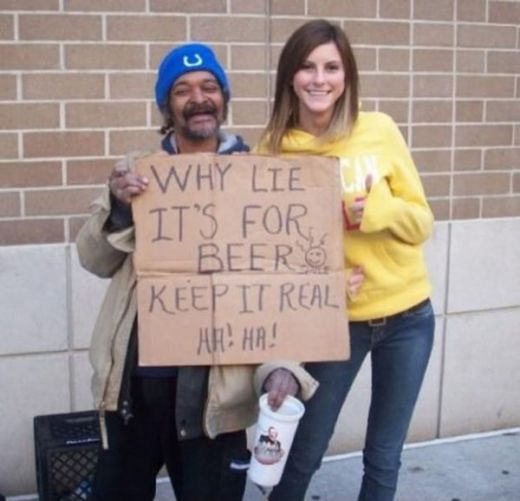 WHY LIE
IT'S FOR
BEER
KEEP IT REAL
HA! HA!